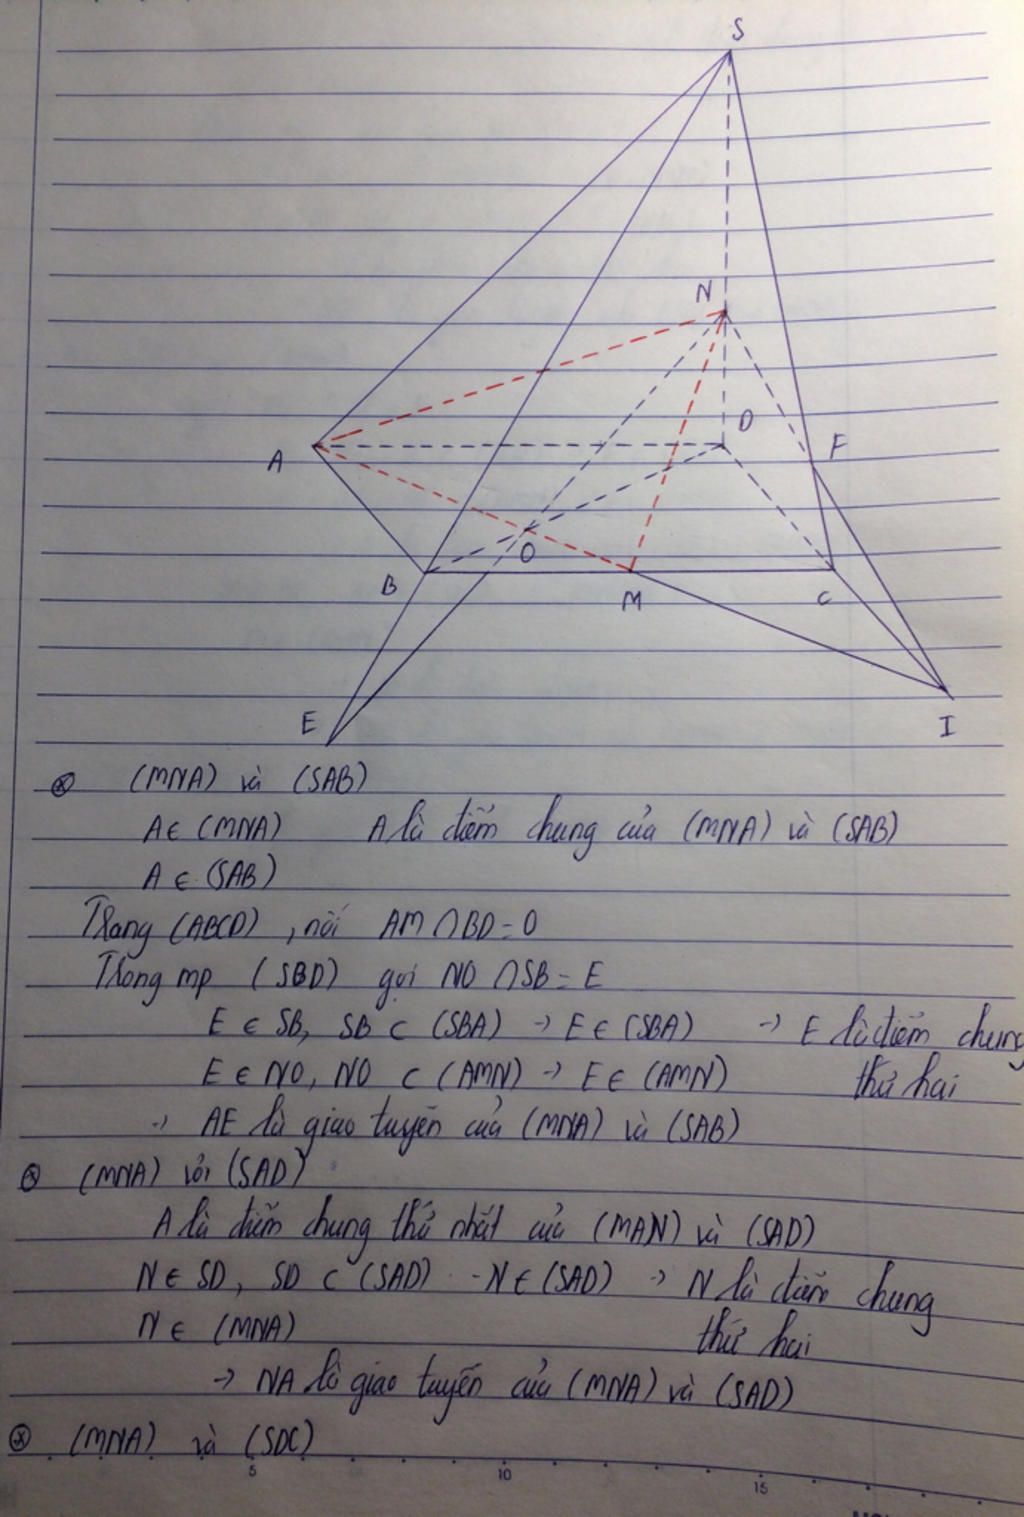 S
N
A
D
F
O
B
M
C
E
I
⊗ (MNA) và (SAB)
A ∈ (MNA) A là điểm chung của (MNA) và (SAB)
A ∈ (SAB)
Trong (ABCD), nối AM ∩ BD = O
Trong mp (SBD) gọi NO ∩ SB = E
E ∈ SB, SB ⊂ (SBA) → E ∈ (SBA) → E là điểm chung
E ∈ NO, NO ⊂ (AMN) → E ∈ (AMN) thứ hai
→ AE là giao tuyến của (MNA) và (SAB)
⊗ (MNA) với (SAD)
A là điểm chung thứ nhất của (MAN) và (SAD)
N ∈ SD, SD ⊂ (SAD) - N ∈ (SAD) → N là điểm chung
N ∈ (MNA) thứ hai
→ NA là giao tuyến của (MNA) và (SAD)
⊗ (MNA) và (SDC)
5 10 15